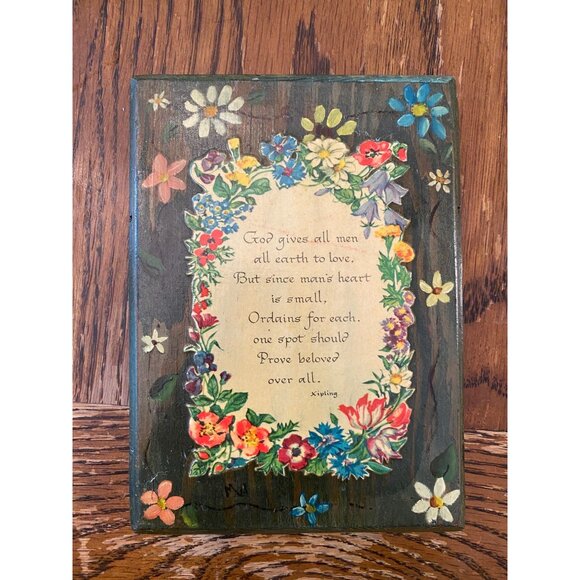 God gives all men
all earth to love,
But since man's heart
is small,
Ordains for each,
one spot should
Prove beloved
over all.
Kipling